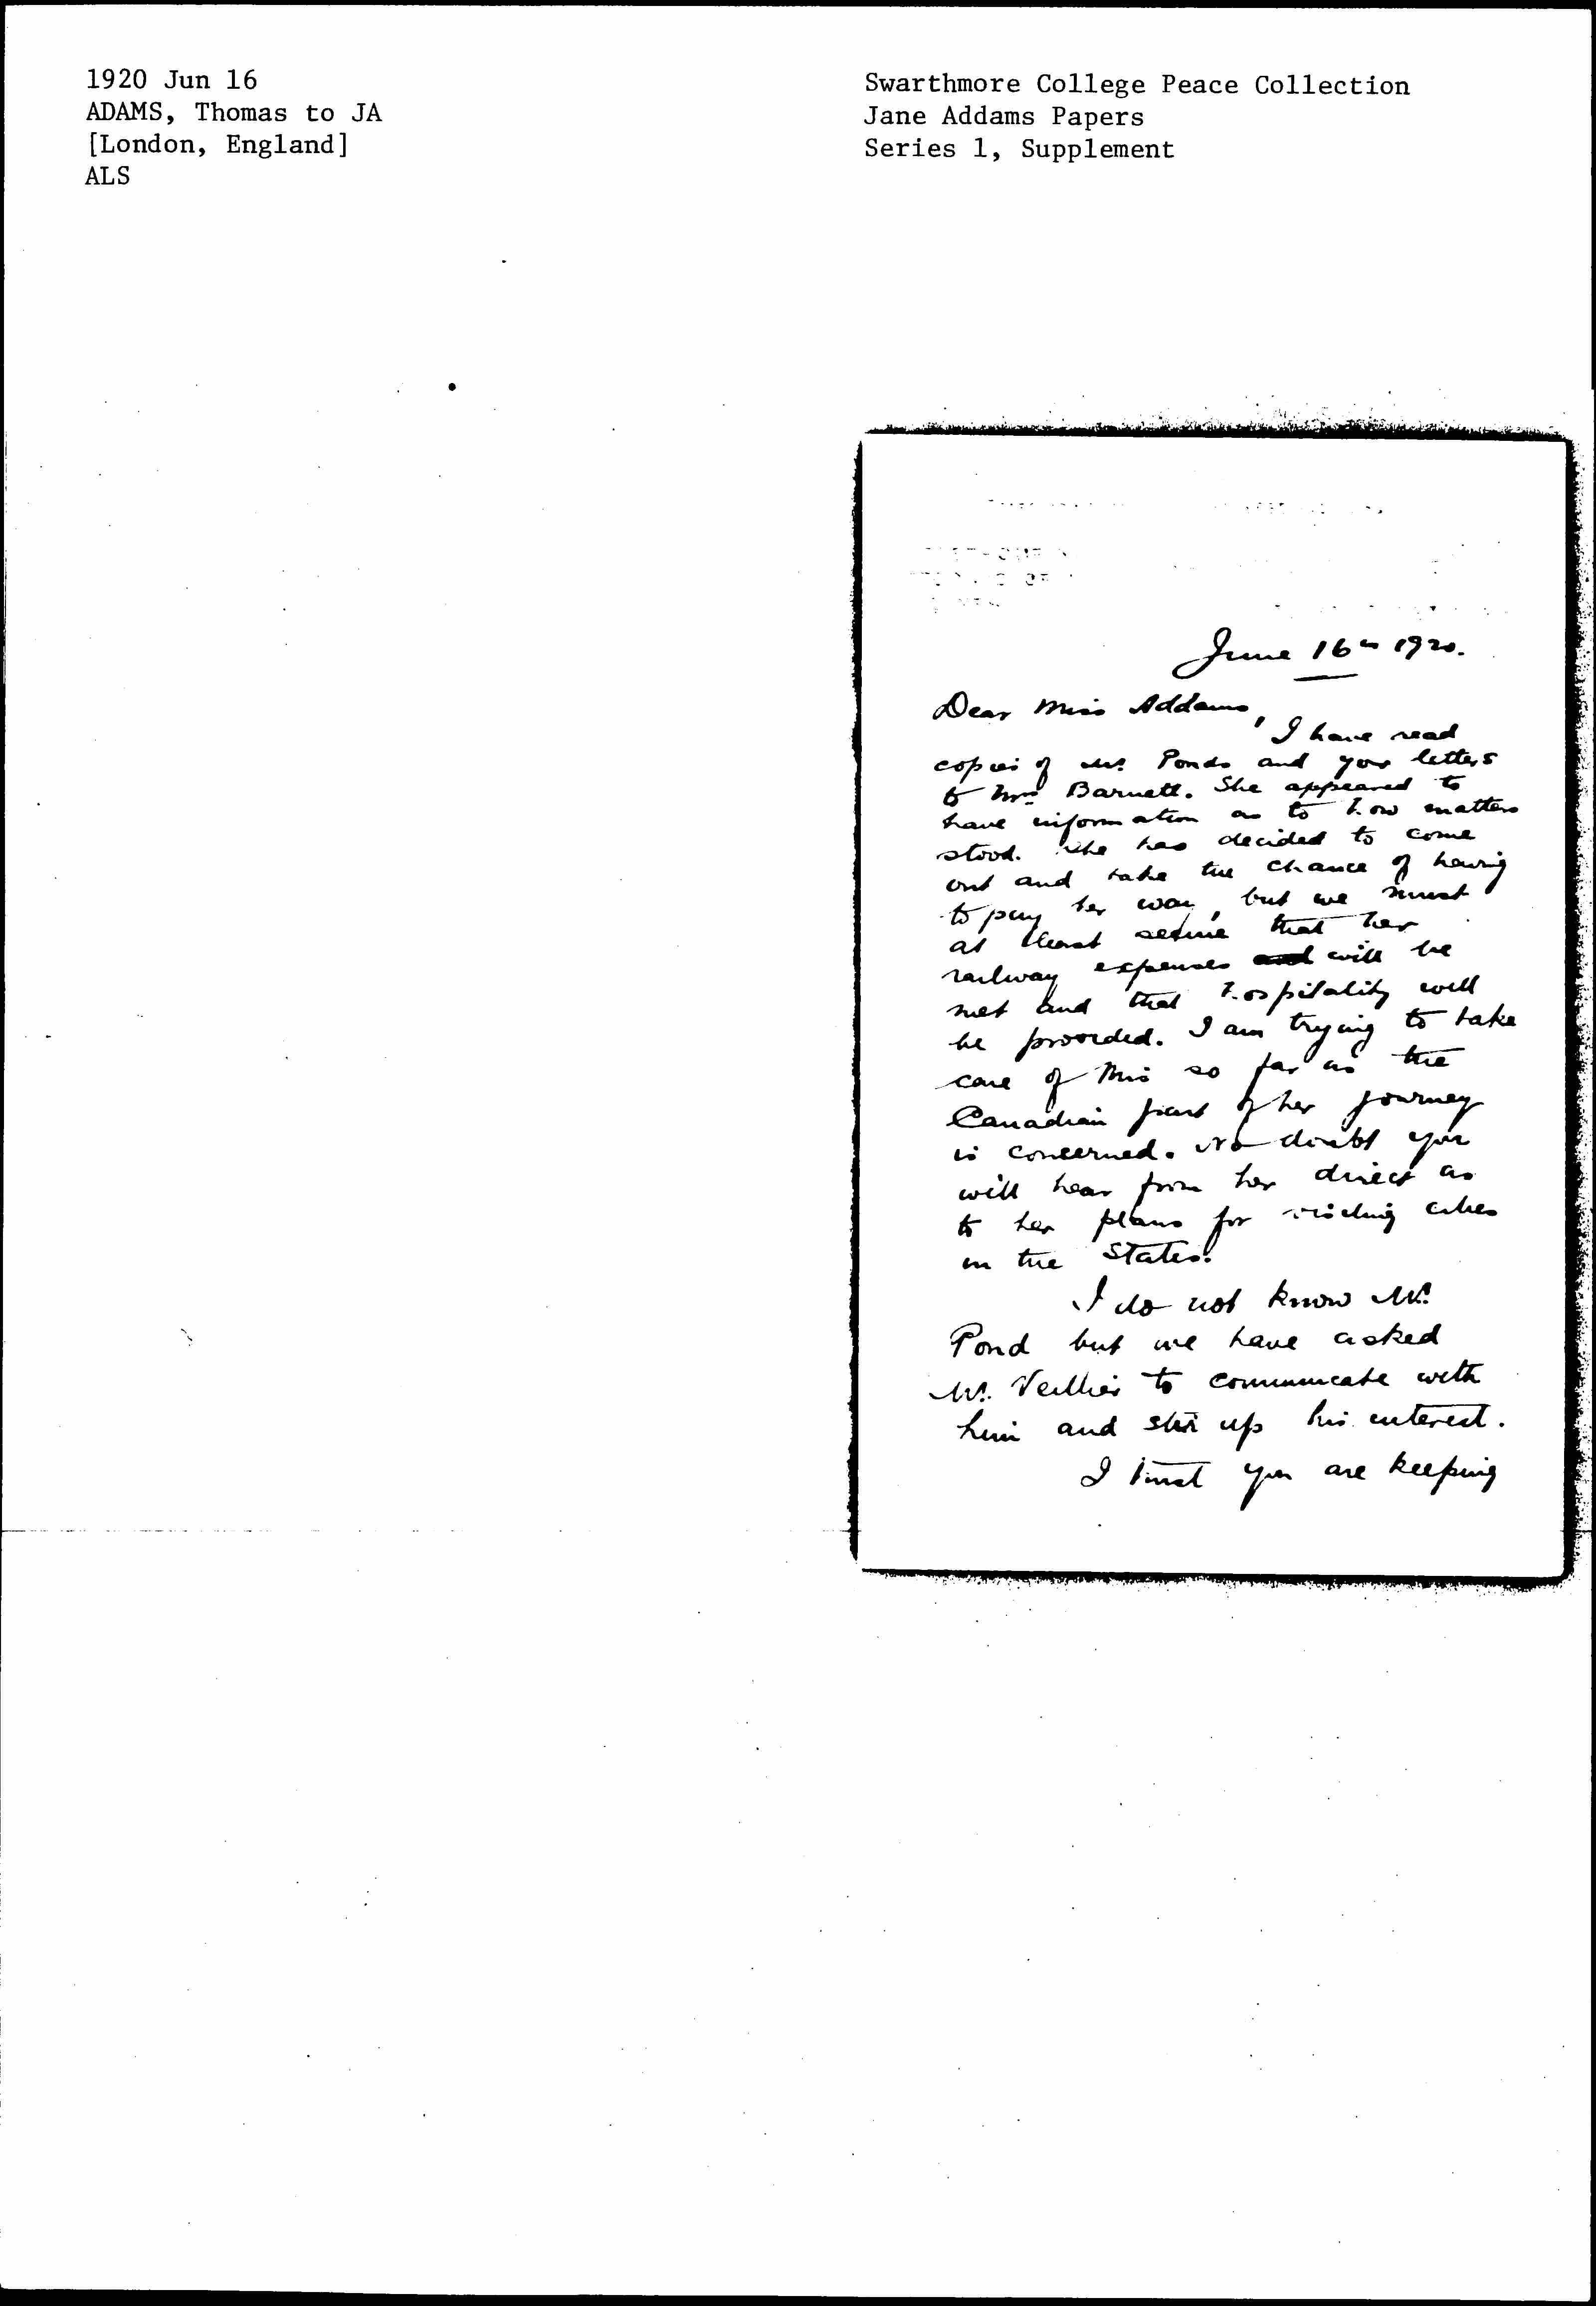 1920 Jun 16
ADAMS, Thomas to JA
[London, England]
ALS
Swarthmore College Peace Collection
Jane Addams Papers
Series 1, Supplement
June 16th 1920.
Dear Miss Addams,
I have read
copies of Mr. Ponds and your letters
to Mrs Barnett. She appeared to
have information as to how matters
stood. She has decided to come
out and take the chance of having
to pay her way, but we must
at least secure that her
railway expenses will be
met and that hospitality will
be provided. I am trying to take
care of this so far as the
Canadian part of her journey
is concerned. No doubt you
will hear from her direct as
to her plans for visiting cities
in the States.
I do not know Mr.
Pond but we have asked
Mr. Veiller to communicate with
him and stir up his interest.
I trust you are keeping